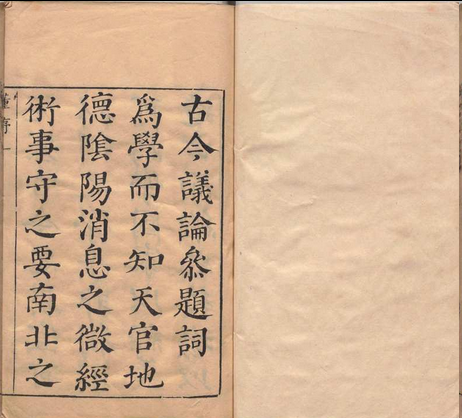 古今議論叅題詞
爲學而不知天官地
德陰陽消息之微經
術事守之要南北之